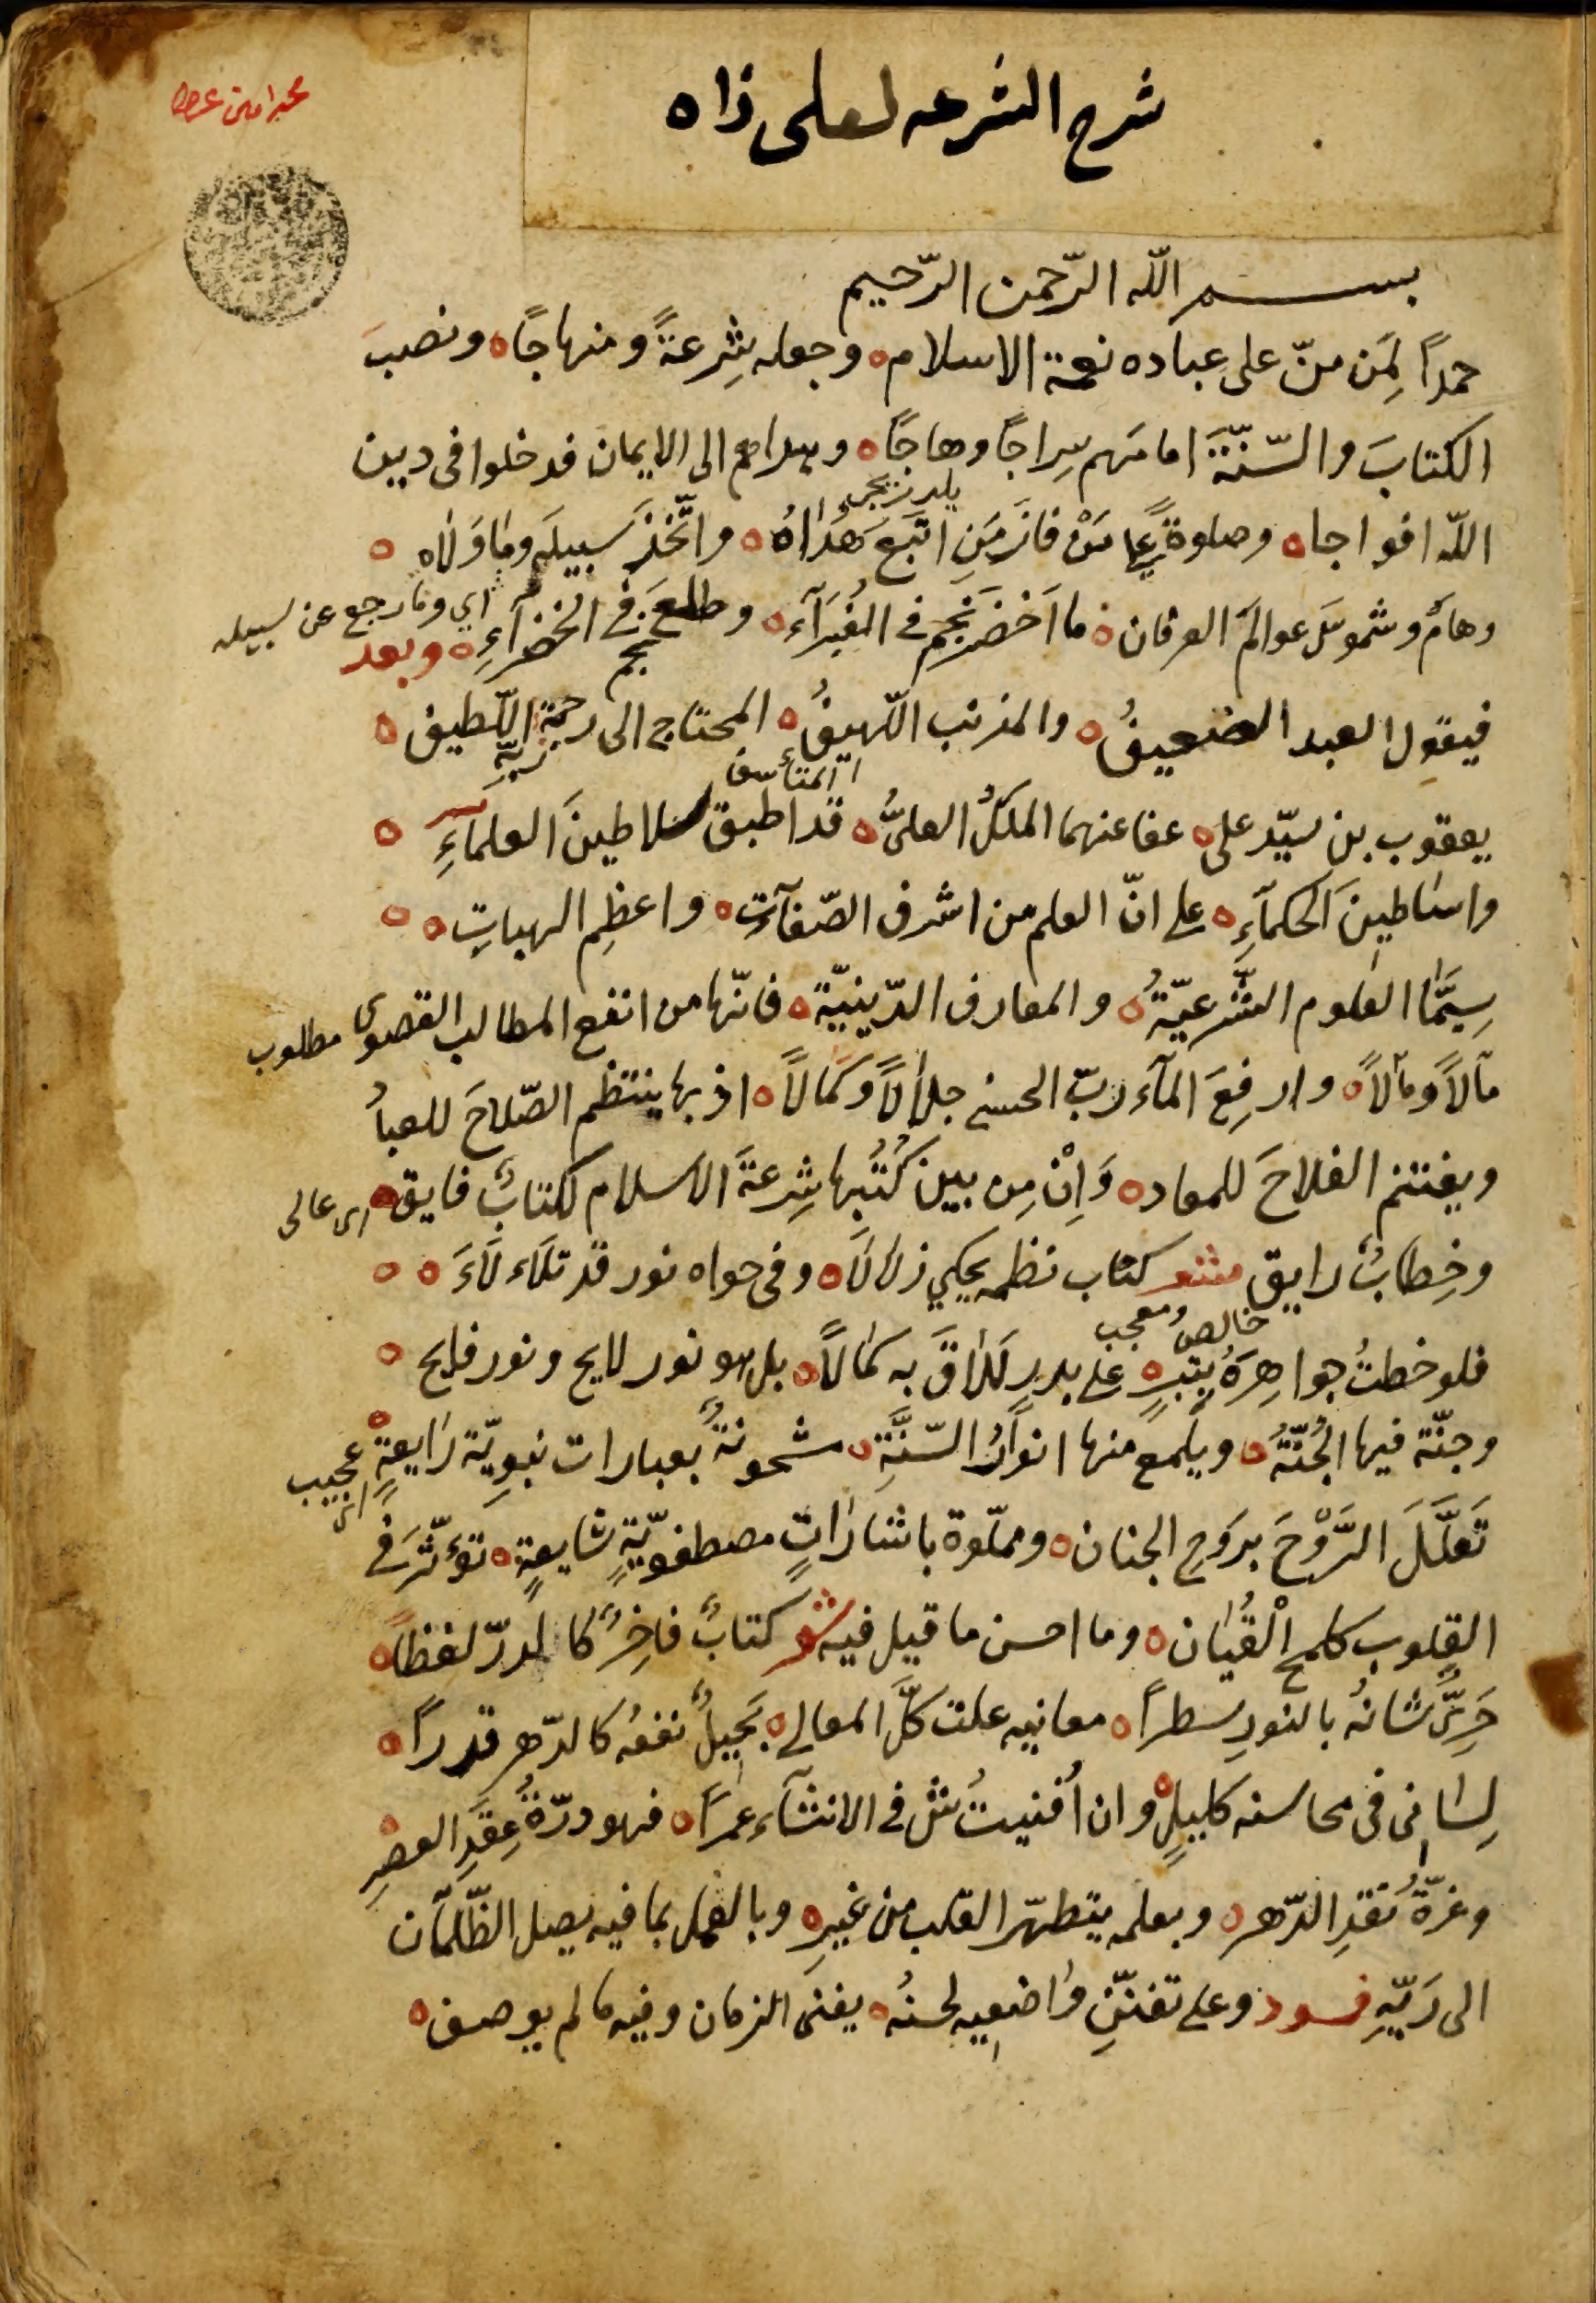 شرح الشرعه لعلى زاده
بسم الله الرّحمن الرّحيم
حمداً لِمَن منّ على عباده نعمة الاسلام وجعله شِرعةً ومنهاجًا ونصبَ
الكتابَ والسّنّةَ امامَهم سِراجًا وهاجًا وهداهم الى الايمان فدخلوا فى دين
الله افواجا وصلوةً على مَنْ فازَ مَنِ اتّبَعَ هُدَاهُ واتّخذَ سبيلَه وما وَلاه
اي وما رجع عن سبيله
وهاَم وشموسَ عوالَم العرفان ما اَخضَرَ نجم فى الغُبَرآء وطلعَ فى الخضرآءِ وبعد
نجم
فيقول العبد الضعيفُ والمذنب اللّهيفُ المحتاج الى رحمة ربّه اللّطيف
المتأسف
يعقوب بن سيّد على عفا عنهما الملكُ العلىُّ قد اطبق سلاطينَ العلمآءِ
واساطينَ الحكمآءِ على انّ العلم من اشرف الصّفآت واعظمِ الهباتِ
سِيَّما العلوم الشّرعيّةُ والمعارف الدّينيّة فانّها من انفع المطالب القصوى مطلوب
مآلاً ومالاً وارفعَ المآرب الحسنى جلالاً وكمالاً اذ بها ينتظم الصّلاحَ للعباد
ويغتنم الفلاحَ للمعاد وَاِنْ مِن بين كُتُبها شِرعةَ الاسلام لكتابٌ فايق
اى عالى
وخِطابٌ رايق شعر كتاب نظمه يحكي زلالاً وفى حواه نور قد تلألأ
خالص معجب
فلو خطتُ جواهِرَهُ بتبرٍ على بدرٍ لَلاقَ به كمالاً بل هو نور لايح ونور فايح
وجنّة فيها الجُنّةُ ويلمع منها انوارُ السّنّةِ مشحونةٌ بعبارات نبويّة رايعةٍ
اى عجيب
تَعلَّلَ الرَّوْحَ بروحِ الجنان ومملّوة باشاراتٍ مصطفويّةٍ شايعةٍ تؤثّر فى
القلوب كلمح القُيٰان وما احسن ما قيل فيه شعر كتابٌ فاخِرٌ كالدرّ لفظاً
حَرِىٌّ شانُه بالنورِ سطراً معانيه علت كلَّ المعالى بَجيلٌ نفعُه كالدّهر قدراً
لِسَانى فى محاسنه كليلٌ وان اُفنيتُ فى الانشآء عمرًا فهو درّةُ عِقدِ العصرِ
وغرّةُ نقدِ الدّهر وبعلمه يتطهّر القلب من غيرِه وبالعمل بما فيه يصل الظّمآن
الى رَيّهِ وعلى تفنّنِ واضعيه لحسنُه يفنى الزمان وفيه ما لم يوصف